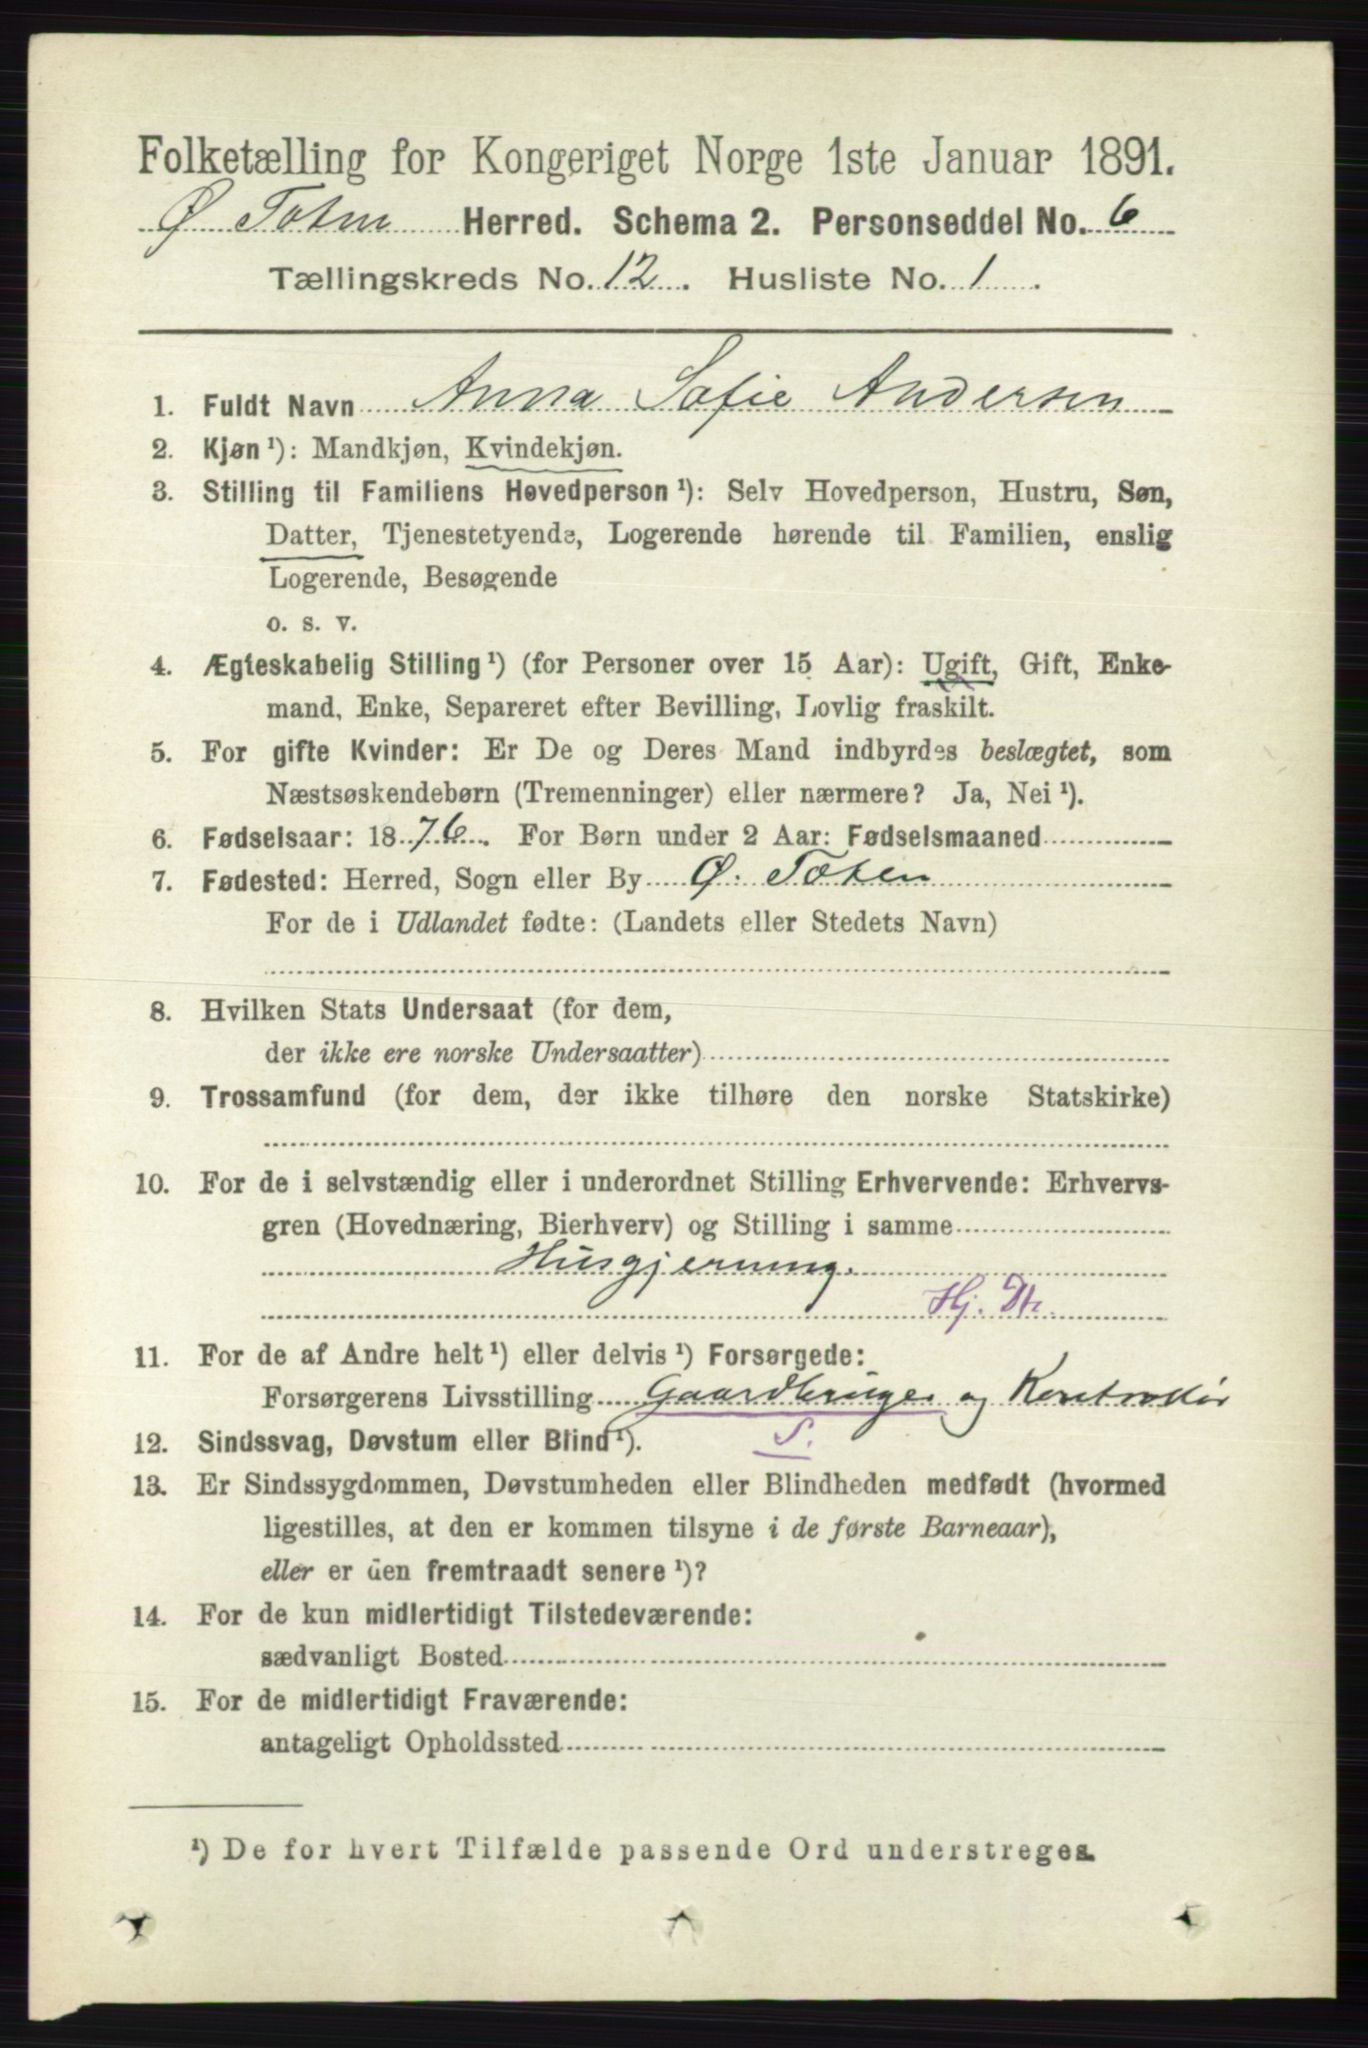 Folketælling for Kongeriget Norge 1ste Januar 1891.
Ø Toten Herred. Schema 2. Personseddel No. 6
Tællingskreds No. 12. Husliste No. 1.
1. Fuldt Navn Anna Sofie Andersen
2. Kjøn ¹): Mandkjøn, Kvindekjøn.
3. Stilling til Familiens Hovedperson ¹): Selv Hovedperson, Hustru, Søn,
Datter, Tjenestetyende, Logerende hørende til Familien, enslig
Logerende, Besøgende
o. s. v.
4. Ægteskabelig Stilling ¹) (for Personer over 15 Aar): Ugift, Gift, Enke-
mand, Enke, Separeret efter Bevilling, Lovlig fraskilt.
5. For gifte Kvinder: Er De og Deres Mand indbyrdes beslægtet, som
Næstsøskendebørn (Tremenninger) eller nærmere? Ja, Nei ¹).
6. Fødselsaar: 1876. For Børn under 2 Aar: Fødselsmaaned
7. Fødested: Herred, Sogn eller By Ø. Toten
For de i Udlandet fødte: (Landets eller Stedets Navn)
8. Hvilken Stats Undersaat (for dem,
der ikke ere norske Undersaatter)
9. Trossamfund (for dem, der ikke tilhøre den norske Statskirke)
10. For de i selvstændig eller i underordnet Stilling Erhvervende: Erhvervs-
gren (Hovednæring, Bierhverv) og Stilling i samme
Husgjerning.
Hj. Dtr.
11. For de af Andre helt ¹) eller delvis ¹) Forsørgede:
Forsørgerens Livsstilling Gaardbruger og Kontrollør
12. Sindssvag, Døvstum eller Blind ¹). S.
13. Er Sindssygdommen, Døvstumheden eller Blindheden medfødt (hvormed
ligestilles, at den er kommen tilsyne i de første Barneaar),
eller er den fremtraadt senere ¹)?
14. For de kun midlertidigt Tilstedeværende:
sædvanligt Bosted
15. For de midlertidigt Fraværende:
antageligt Opholdssted
¹) De for hvert Tilfælde passende Ord understreges.